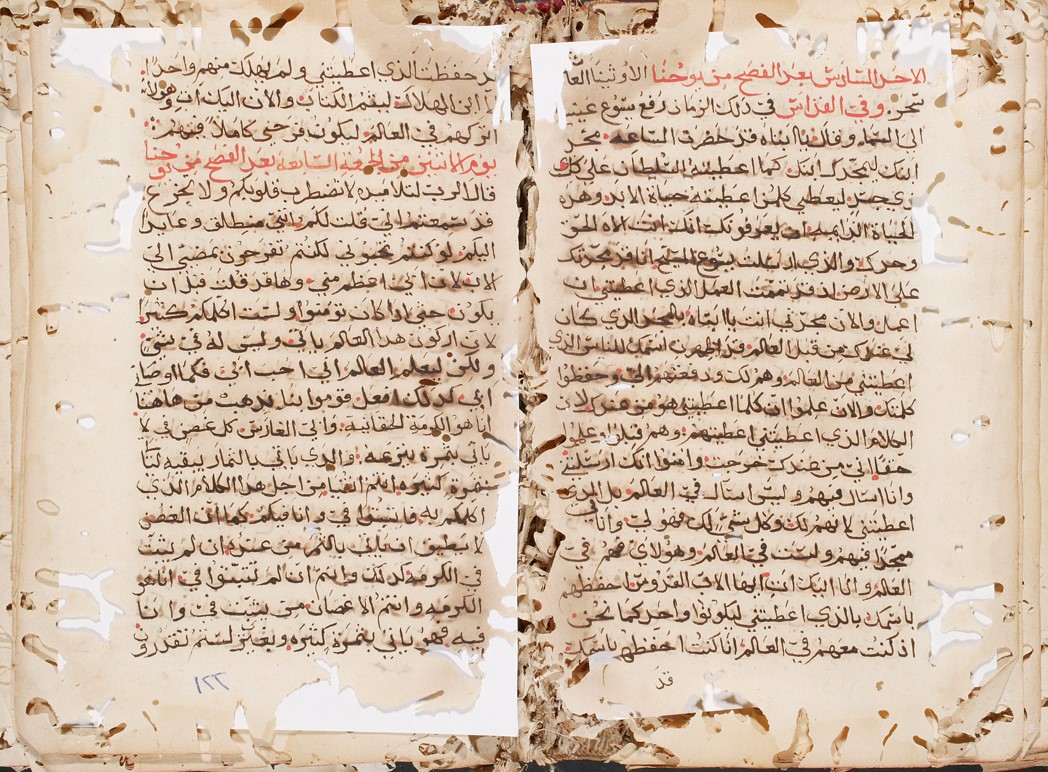 الاحد السادس بعد الفصح من يوحنا الاوثينا العا
شحر. وفي القداس في ذلك الزمان رفع يسوع عينيه
الى السماء وقال يا ابتاه قد حضرت الساعه مجد
ابنك ليمجدك ابنك كما اعطيته السلطان على كل
ذي جسد ليعطي كلمن اعطيته حياة الابد وهذه
الحياة الدايمه ان يعرفونك انك انت الاه الحق
وحدك والذي ارسلت يسوع المسيح انا قد مجدتك
على الارض اذ قد تممت العمل الذي اعطيتني ان
اعمله والان مجدني انت يا ابتاه بالمجد الذي كان
لي عندك من قبل العالم قد اظهرت اسمك للناس الذي
اعطيتني من العالم وهم لك ودفعتهم الي وحفظوا
كلمتك والان علموا ان كلما اعطيتني هو من عندك لان
الكلام الذي اعطيتني اعطيتهم وهم قبلوه علموا
حقا اني من عندك خرجت وامنوا انك ارسلتني
وانا اسال فيهم وليس اسال في العالم بل الذي
اعطيتني لانهم لك وكل شي لك فهو لي وانا في
ممجدا فيهم ولست في العالم وهولاي فهم في
العالم وانا اليك ات ايها الاب القدوس احفظهم
باسمك الذي اعطيتني ليكونوا واحد كما نحن
اذ كنت معهم في العالم انا كنت احفظهم باسمك
قد
قد حفظت الذي اعطيتني ولم يهلك منهم واحدا
الا ابن الهلاك ليتم الكتاب والان اليك ات وهولاء
اتركهم في العالم ليكون فرحي كاملا فيهم
يوم الاثنين من الجمعه السابعه بعد الفصح من يوحنا
قال الرب لتلاميذه لا تضطرب قلوبكم ولا تجزع
قد سمعتم اني قلت لكم انني منطلق وعايد
اليكم لو كنتم تحبوني لكنتم تفرحون بمضيي الى
الاب لان ابي اعظم مني وها قد قلت قبل ان
يكون حتى اذا كان تومنوا ولست اكلمكم كثيرا
لان اركون هذا العالم ياتي وليس له في شي
ولكن ليعلم العالم اني احب ابي فكما اوصا
ابي كذلك افعل قوموا بنا نذهب من هاهنا
انا هو الكرمة الحقانيه وابي الغارس كل غصن في لا
ياتي بثمره ينزعه والذي ياتي بالثمار ينقيه لتا
بثمرة كثيره انتم انقيا من اجل هذا الكلام الذي
اكلمكم به فاثبتوا في وانا فيكم كما ان الغصن
لا يطيق ان ياتي بالثمر من عنده ان لم يثبت
في الكرمه كذلك وانتم ان لم تثبتوا في انا هو
الكرمه وانتم الاغصان من يثبت في وانا
فيه فهو ياتي بثمرة كثيره وبغيري لستم تقدرو
١٢٢